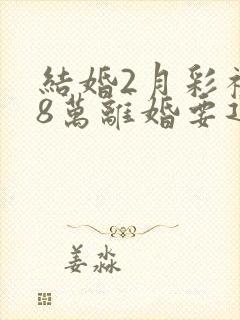 結婚2月彩礼
8萬離婚要
姜淼